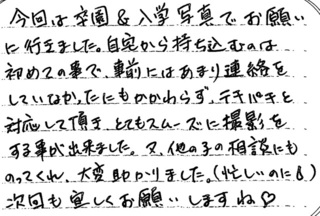 今回は卒園&入学写真でお願い
に行きました。自宅から持ち込むのは
初めての事で、事前にはあまり連絡を
していなかったにもかかわらず、テキパキと
対応して頂き、とてもスムーズに撮影を
する事が出来ました。又、他の子の相談にも
のってくれ、大変助かりました。(忙しいのに!!)
次回も宜しくお願いしますね♡